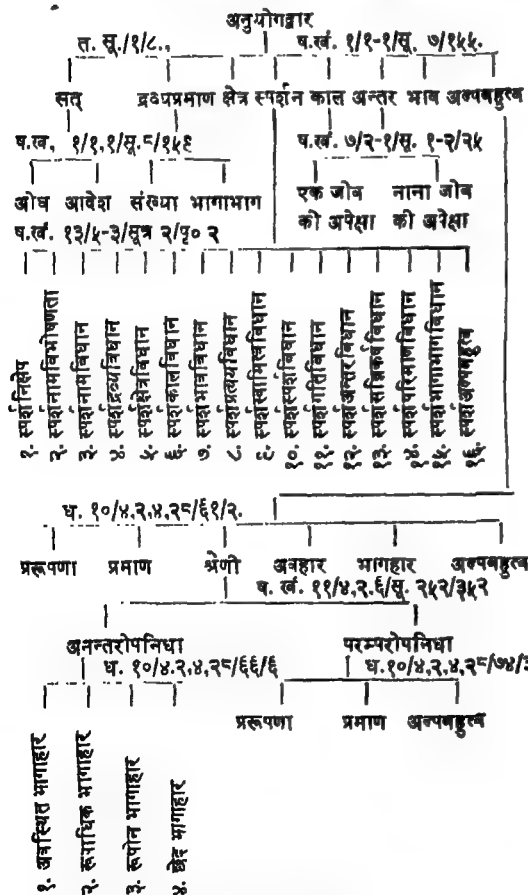 अनुयोगद्वार
त. सू./१/८., ष.खं. १/१-१/सू. ७/१५५.
सत् द्रव्यप्रमाण क्षेत्र स्पर्शन काल अन्तर भाव अल्पबहुत्व
ष.ख. १/१.१/सू.८/१५९ ष.खं. ७/२-१/सू. १-२/२५
ओघ आदेश संख्या भागाभाग
एक जीव नाना जीव
की अपेक्षा की अपेक्षा
ष.खं. १३/५-३/सूत्र २/पृ० २
१. स्पर्शनिक्षेप
२. स्पर्शनामविभाषणता
३. स्पर्शनामविधान
४. स्पर्शद्रव्यविधान
५. स्पर्शक्षेत्रविधान
६. स्पर्शकालविधान
७. स्पर्शभावविधान
८. स्पर्शप्रत्ययविधान
९. स्पर्शस्वामित्वविधान
१०. स्पर्शस्पर्शविधान
११. स्पर्शगतिविधान
१२. स्पर्शअन्तरविधान
१३. स्पर्शसन्निकर्षविधान
१४. स्पर्शपरिमाणविधान
१५. स्पर्शभागाभागविधान
१६. स्पर्शअल्पबहुत्व
ध. १०/४.२.४.२८/६१/२.
प्ररूपणा प्रमाण श्रेणी अवहार भागहार अल्पबहुत्व
ष. खं. ११/४.२.६/सू. २५२/३५२
अनन्तरोपनिधा परम्परोपनिधा
ध. १०/४.२.४.२८/६६/६ ध.१०/४.२.४.२८/७४/३
प्ररूपणा प्रमाण अल्पबहुत्व
१. अवस्थित भागाहार
२. रूपाधिक भागाहार
३. रूपोन भागाहार
४. छेद भागाहार